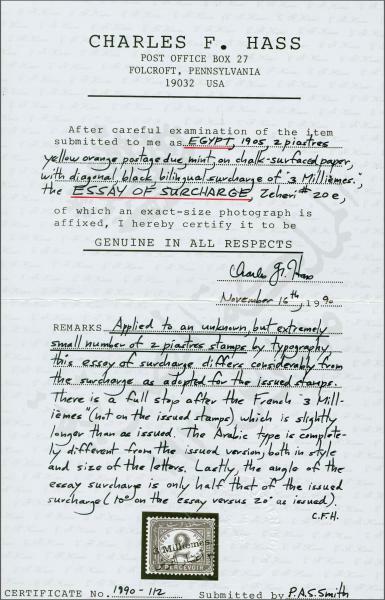 CHARLES F. HASS
POST OFFICE BOX 27
FOLCROFT, PENNSYLVANIA
19032 USA
After careful examination of the item
submitted to me as EGYPT, 1905, 2 piastres
yellow orange postage due, mint, on chalk-surfaced paper,
with diagonal, black bilingual surcharge of "3 Millièmes.",
the ESSAY OF SURCHARGE, Zeheri # 20e,
of which an exact-size photograph is
affixed, I hereby certify it to be
GENUINE IN ALL RESPECTS
Charles F. Hass
November 16th, 1990
REMARKS Applied to an unknown, but extremely
small number of 2 piastres stamps by typography
this essay of surcharge differs considerably from
the surcharge as adopted for the issued stamps.
There is a full stop after the French "3 Mill-
ièmes" (not on the issued stamps) which is slightly
longer than as issued. The Arabic type is complete-
ly different from the issued version, both in style
and size of the letters. Lastly, the angle of the
essay surcharge is only half that of the issued
surcharge (10° on the essay versus 20° as issued).
C.F.H.
3 Millièmes.
A PERCEVOIR
CERTIFICATE NO. 1990-112 Submitted by P.A.S. Smith